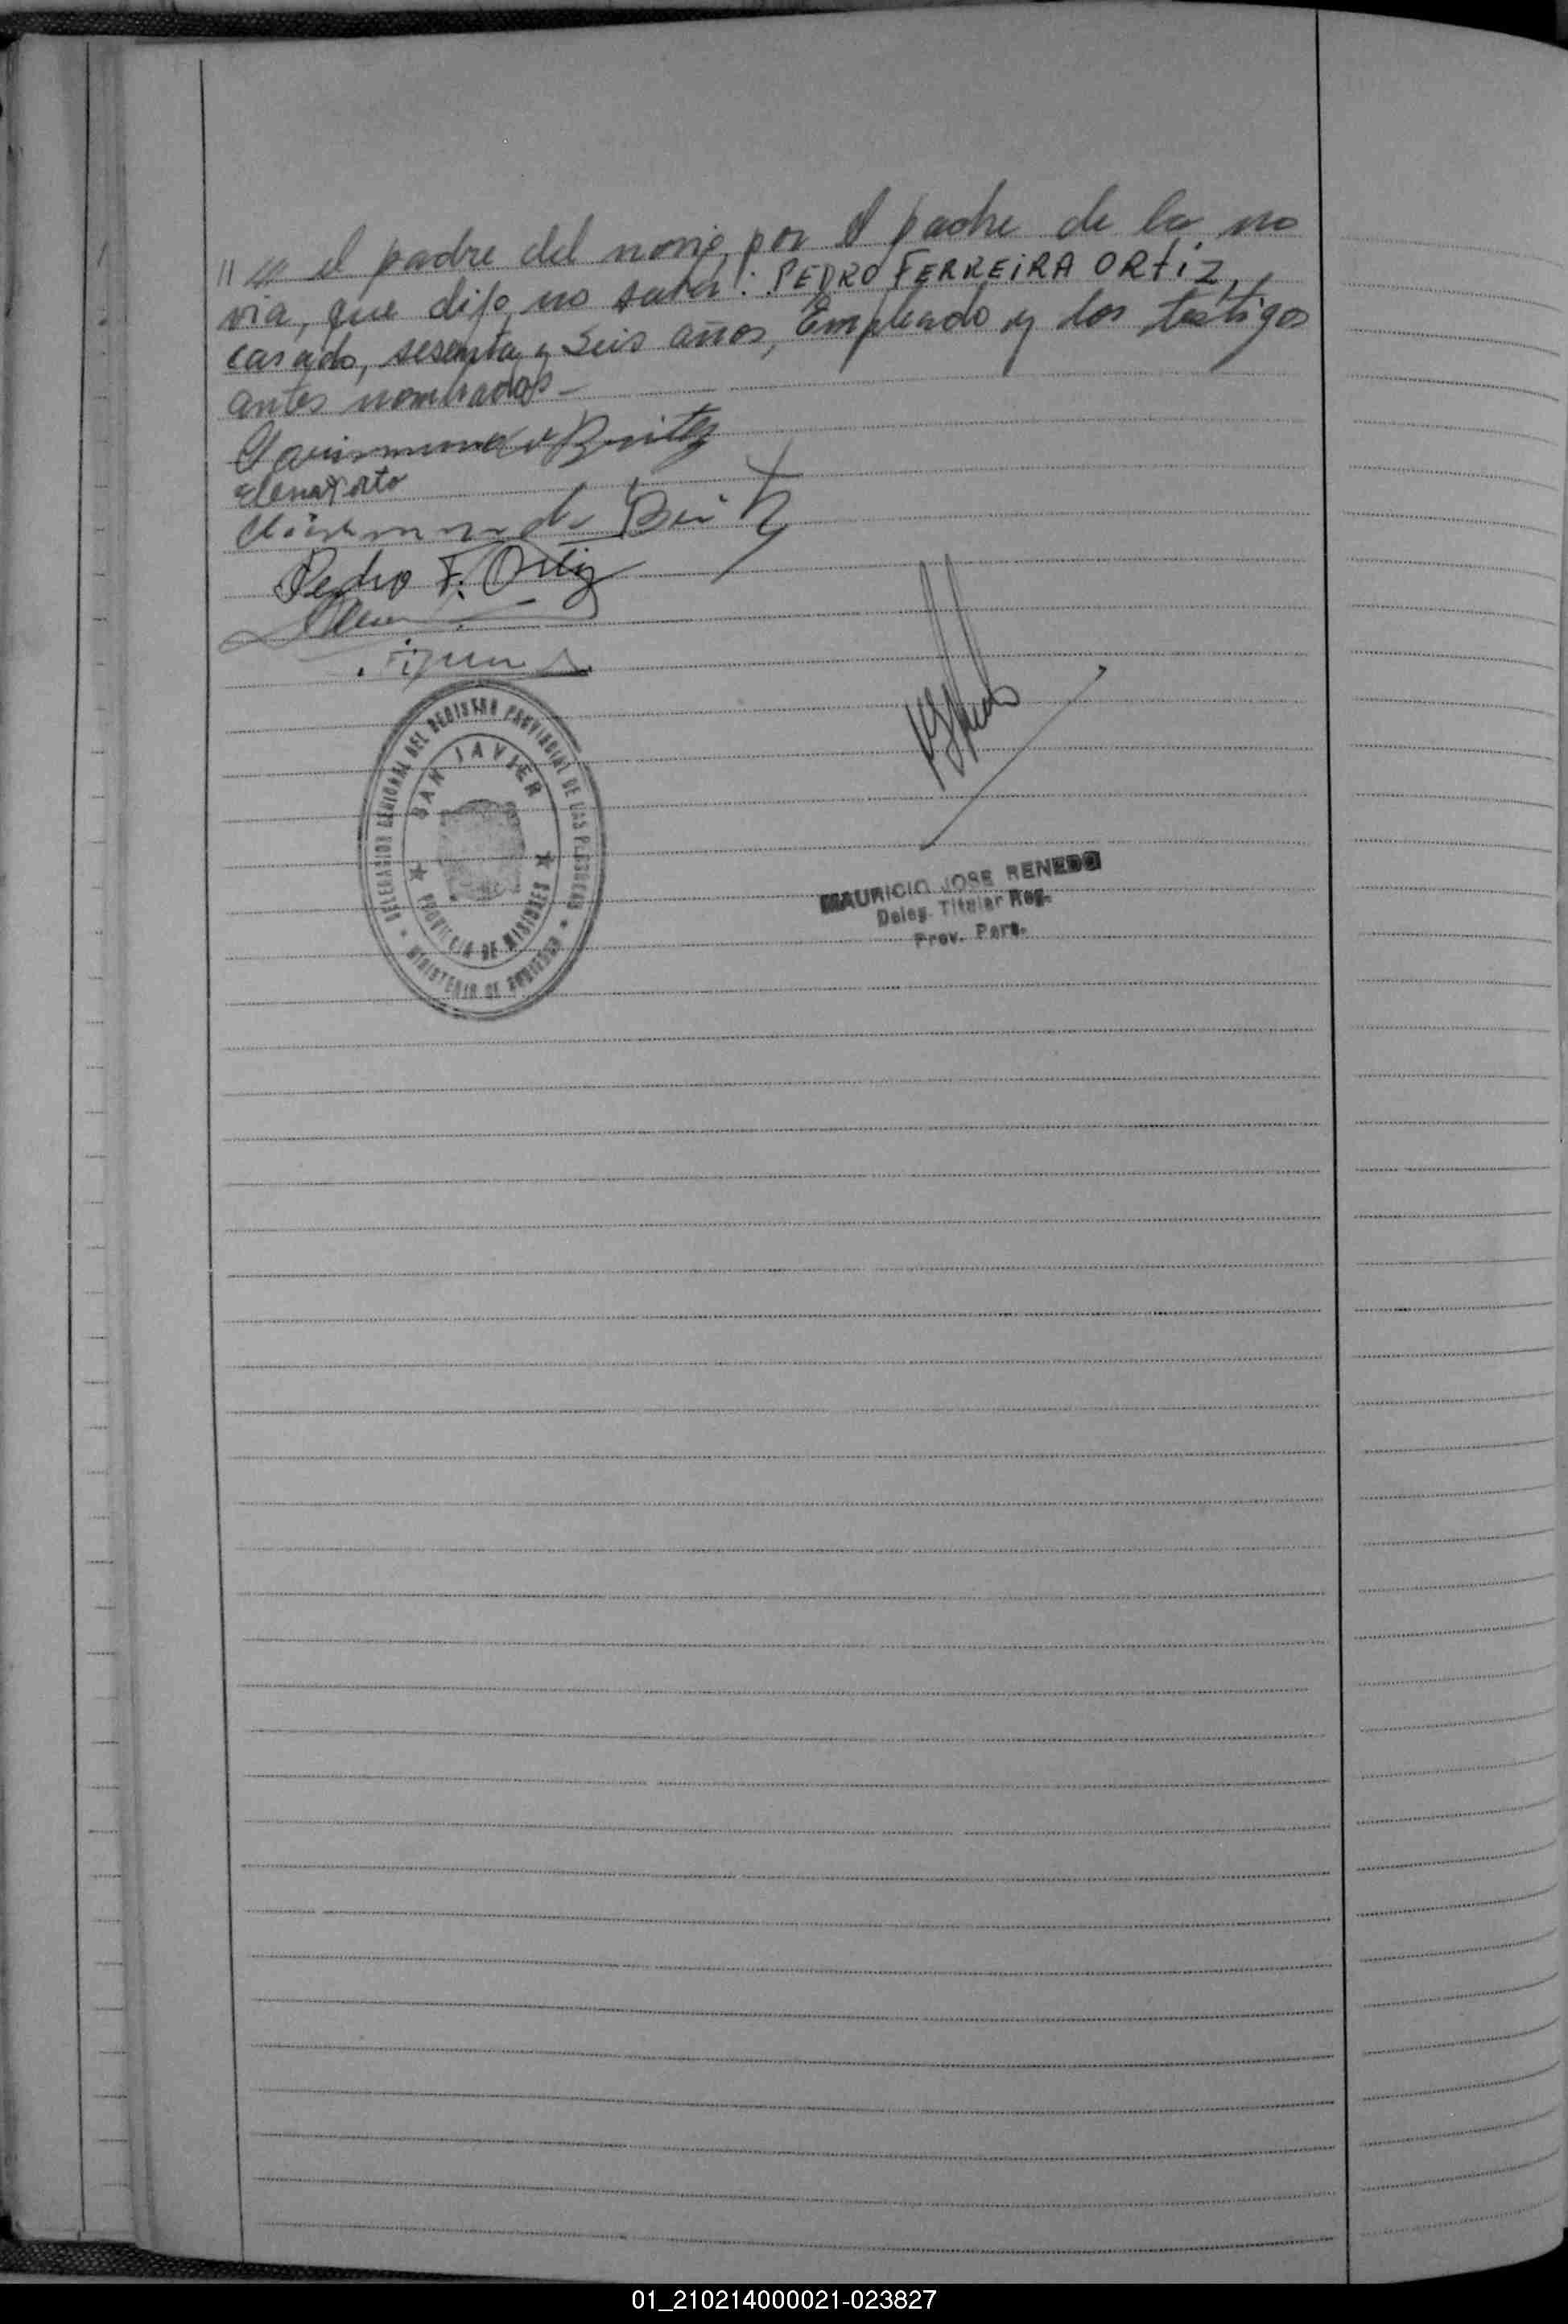 " y el padre del novio, por el padre de la no
via, que dijo no saber: PEDRO FERREIRA ORTIZ,
casado, sesenta y seis años, Empleado y los testigos
antes nombrados -
Benitez
Elena
de
Pedro F. Ortiz
DELEGACION REGIONAL DEL REGISTRO PROVINCIAL DE LAS PERSONAS
SAN JAVIER
PROVINCIA DE MISIONES
MINISTERIO DE GOBIERNO
MAURICIO JOSE RENEDO
Deleg. Titular Reg.
Prov. Pers.
01_210214000021-023827